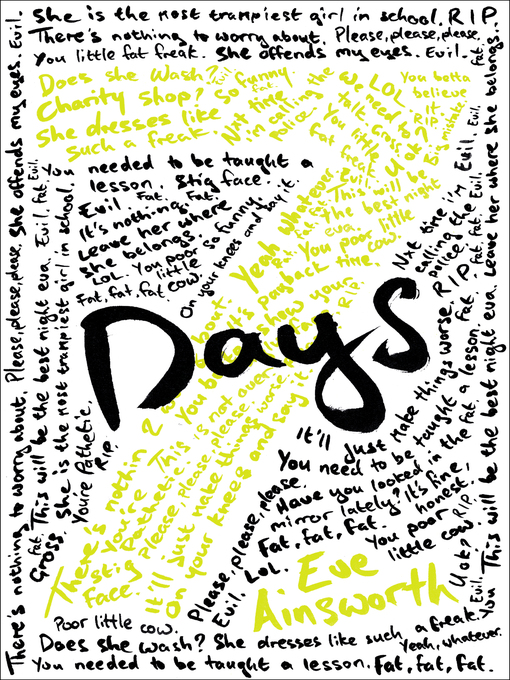 She is the most trampiest girl in school. R.I.P.
There's nothing to worry about. Please, please, please,
You little fat freak. She offends my eyes. Evil.
Does she wash?
Charity shop?
She dresses like
such a freak.
So funny.
Evil.
Fat.
Nxt time
i'm calling the
police.
LOL
We need to
talk. Gross.
You little
fat freak
You betta
believe
it.
R.I.P.
Big mistake
U ok?
You needed to be taught a
lesson. Stig face.
Evil. Fat. Fat.
It's nothing.
Leave her where
she belongs.
LOL. You poor
little
Fat, fat, fat cow.
So funny
On your knees and say it.
Yeah whatever.
This will be
the best night
eva.
You poor little
cow.
payback time.
Days
There's nothin 2
about.
You're
Pathetic.
stig
Face.
Please, please, please.
It'll just make things worse.
On your knees and say it.
It'll just make things worse.
You need to be taught a lesson.
Have you looked in the
mirror lately? It's fine,
Fat, fat, fat.
honest.
You poor
little cow.
R.I.P.
Please, please, please.
Evil. LOL.
Nxt time i'm
calling the
police
Evil.
R.I.P.
U ok?
Eve
Ainsworth
Poor little cow.
Does she wash? She dresses like such a freak.
Yeah, whatever.
You needed to be taught a lesson. Fat, fat, fat.
There's nothing to worry about. Please, please, please, She offends my eyes. Evil.
Fat. This will be the best night eva. Evil. Fat. Evil.
Gross. She is the most trampiest girl in school.
You're Pathetic.
R.I.P.
You This will be the best night eva. Leave her where she belongs.